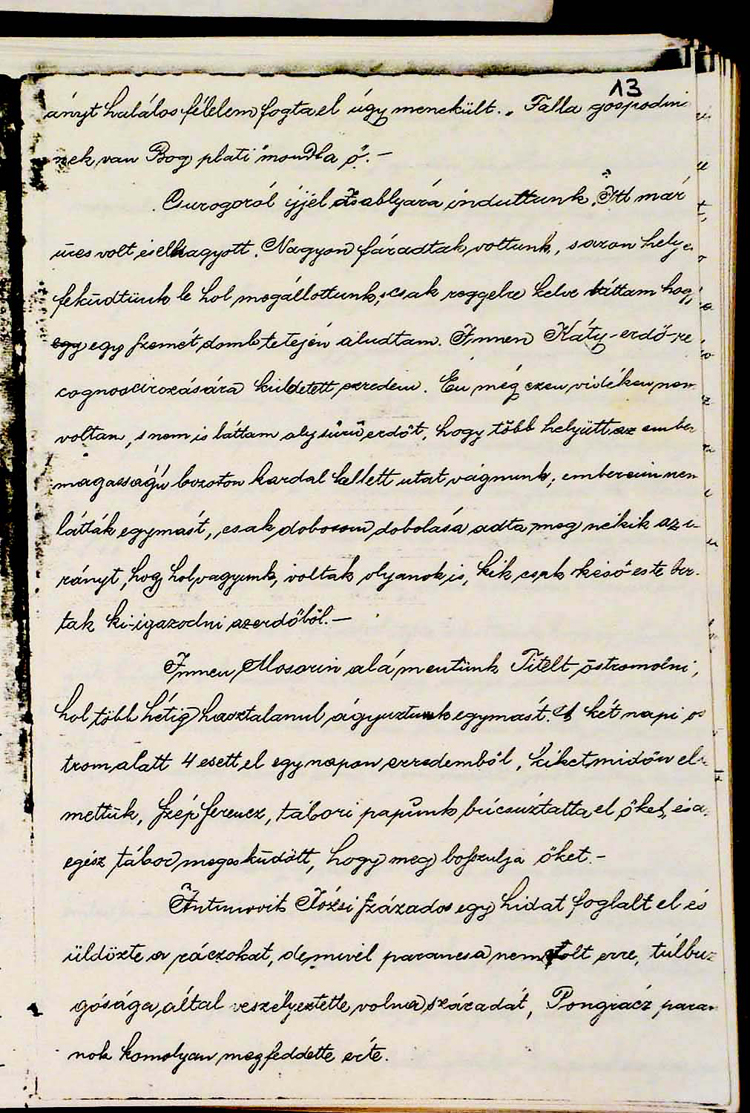 13
ányt halálos félelem fogta el úgy menekült. „Falla gospodini
nek, van Bog plati" mondta ő. –
Curogoról éjjel Zsablyára indultunk, Itt már
üres volt és elhagyott. Nagyon fáradtak voltunk, soron helye
feküdtünk le hol megállottunk, csak reggelre kelve láttam hog
egy egy szemét domb tetején aludtam. Innen Káty-erdő-re
cognoscirozására küldetett, ezredem. Én még ezen vidéken nem
voltam, s nem is láttam oly sürü erdőt, hogy több helyütt az ember
magasságú bozoton karddal kellett utat vágnunk, embereim nem
látták egymást, csak dobosom dobolása adta meg nékik az i-
rányt, hogy hol vagyunk, voltak olyanok is, kik csak késő este bir-
tak ki-igazodni az erdőből. –
Innen, Mosorin alá mentünk Titelt ostromolni,
hol több hétig hasztalanul ágyuztunk egymást. A két napi os
trom alatt 4 esett el egy napon ezredemből, kiket midőn elte
mettük, Szép Ferencz, tábori papunk búcsúztatta el őket, és a
egész tábor megesküdött, hogy meg boszulja őket. –
Antunovits Józsi százados egy hidat foglalt el és
üldözte a ráczokat, de mivel parancsa nem volt erre, túlbuz
gósága által veszélyeztette volna századát, Pongrácz paran
nok komolyan megfeddette érte.